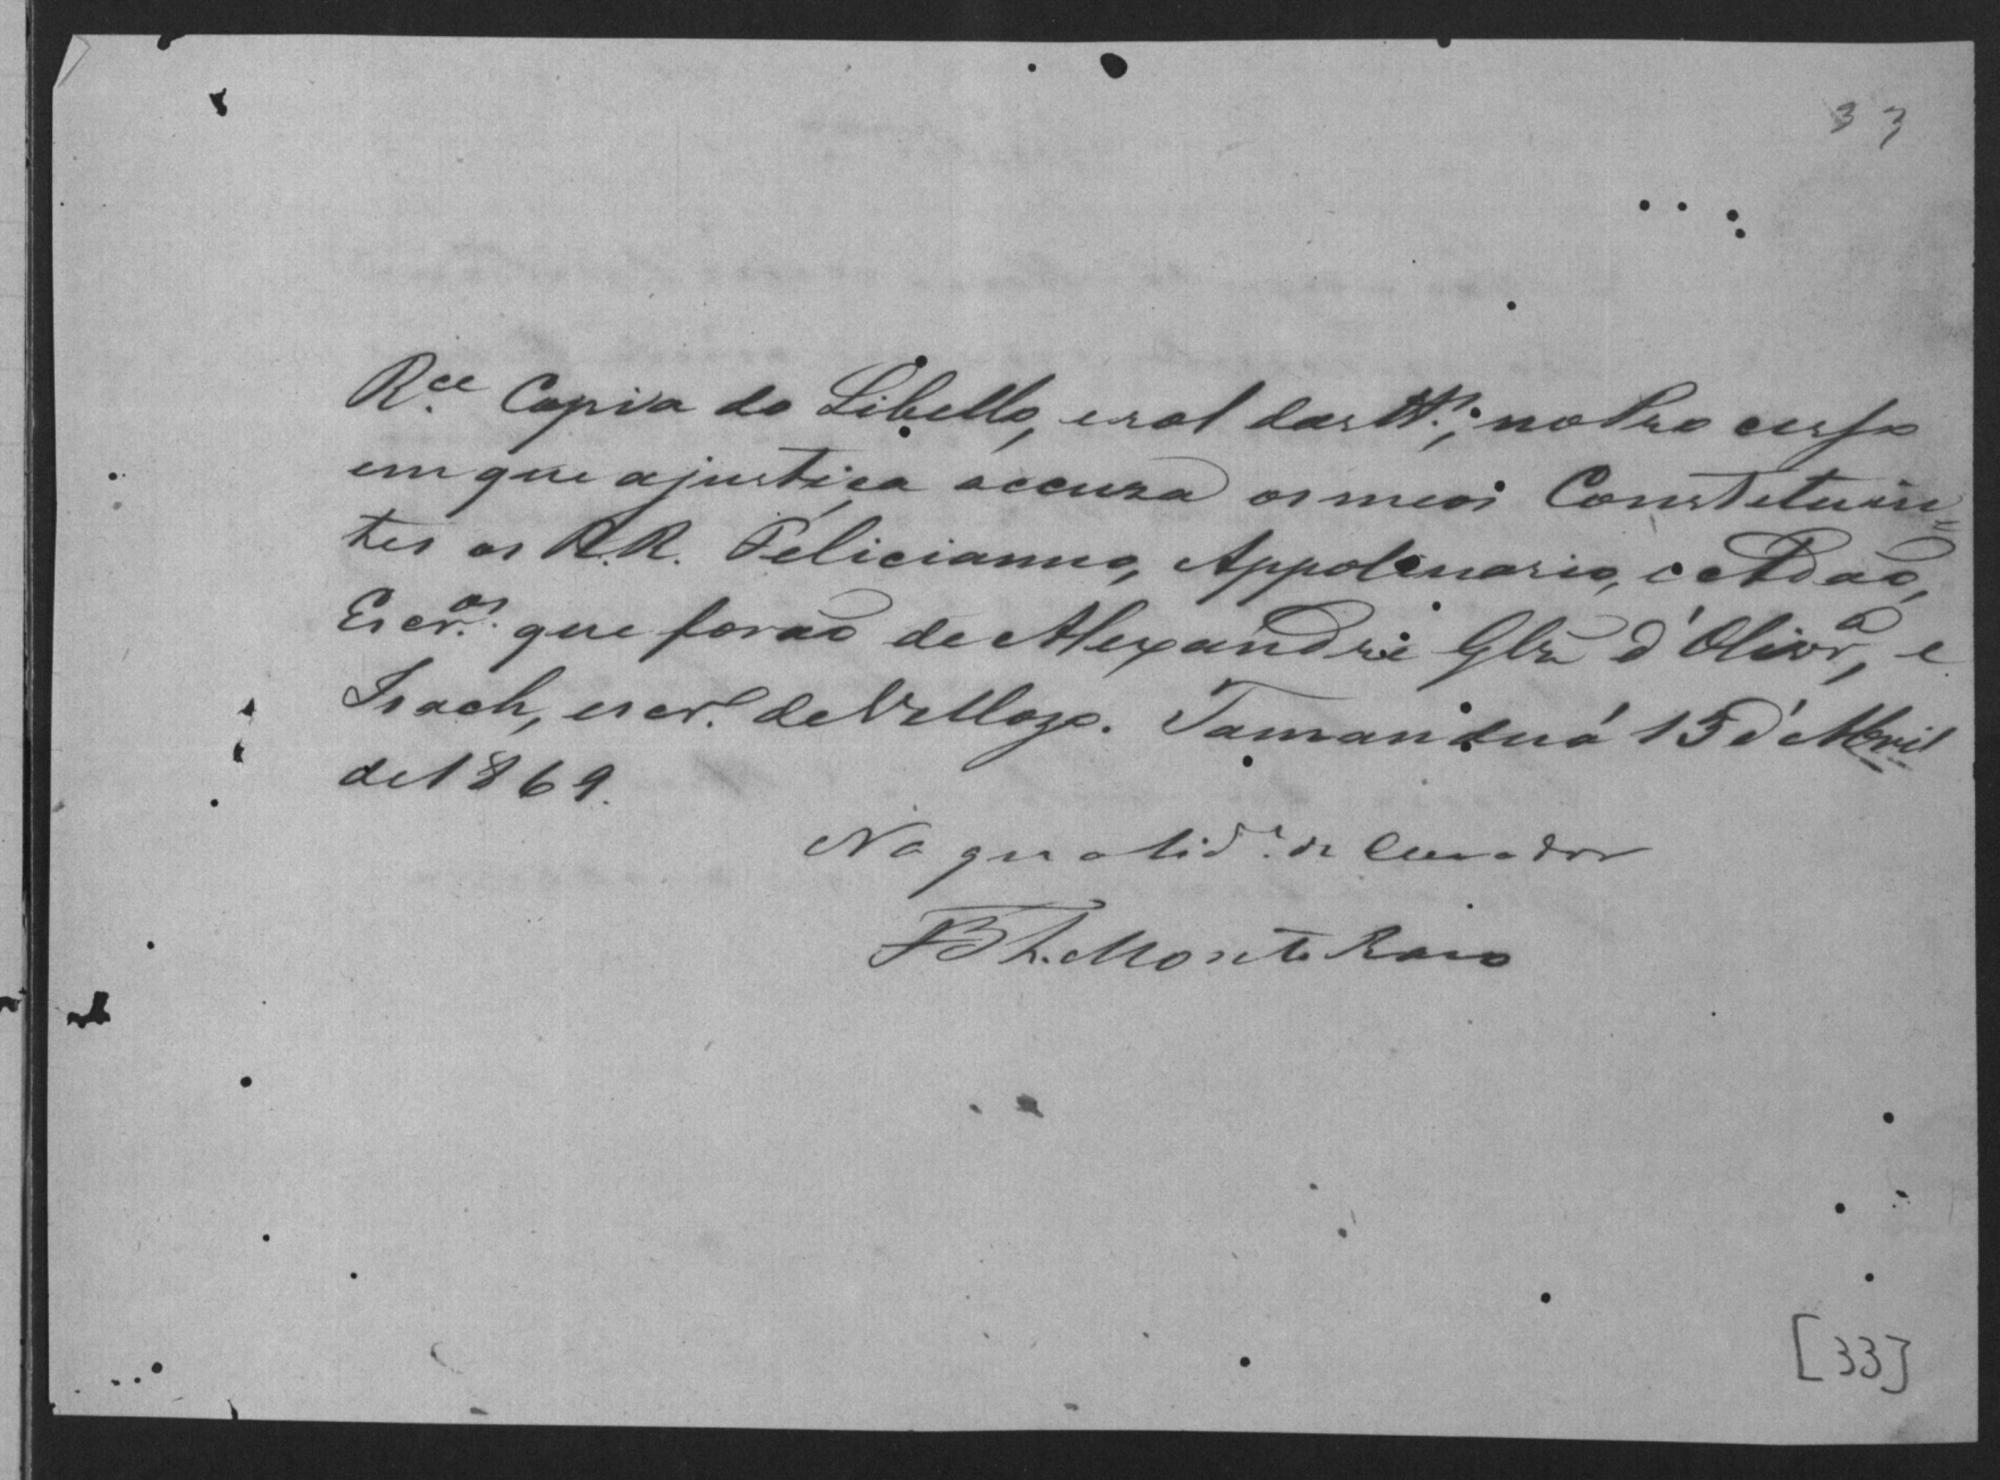 33
R.ce Copia do Libello, e rol das tt.; no Processo
em que a justiça accuza os meos Constetuin=
tes os R.R. Felicianno, Appolenario, e Adão,
Escr.os que forão de Alexandre Glz d'Olivr.a, e
Isach, escr.o de Vellozo. Tamanduá 15 d'Abril
de 1869.
Na qualid.e de Curador
Monte Raso
[33]